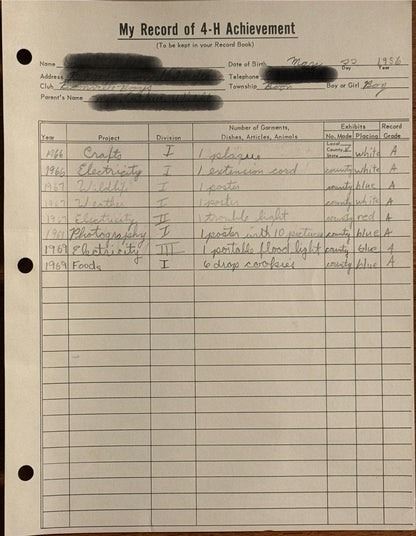 My Record of 4-H Achievement
(To be kept in your Record Book)
Name Date of Birth May 22 1956
Day Year
Address Telephone
Club Township Boon Boy or Girl Boy
Parent's Name
Number of Garments, Exhibits Record
Year Project Division Dishes, Articles, Animals No. Made Placing Grade
Local
County
State
1966 Crafts I 1 plaque white A
1966 Electricity I 1 extension cord county white A
1967 I 1 poster county blue A
1967 Weather I 1 poster county white A
1967 Electricity II 1 trouble light county red A
Photography I 1 poster with 10 pictures county blue A
1969 Electricity III 1 portable flood light county blue A
1969 Foods I 6 drop cookies county blue A